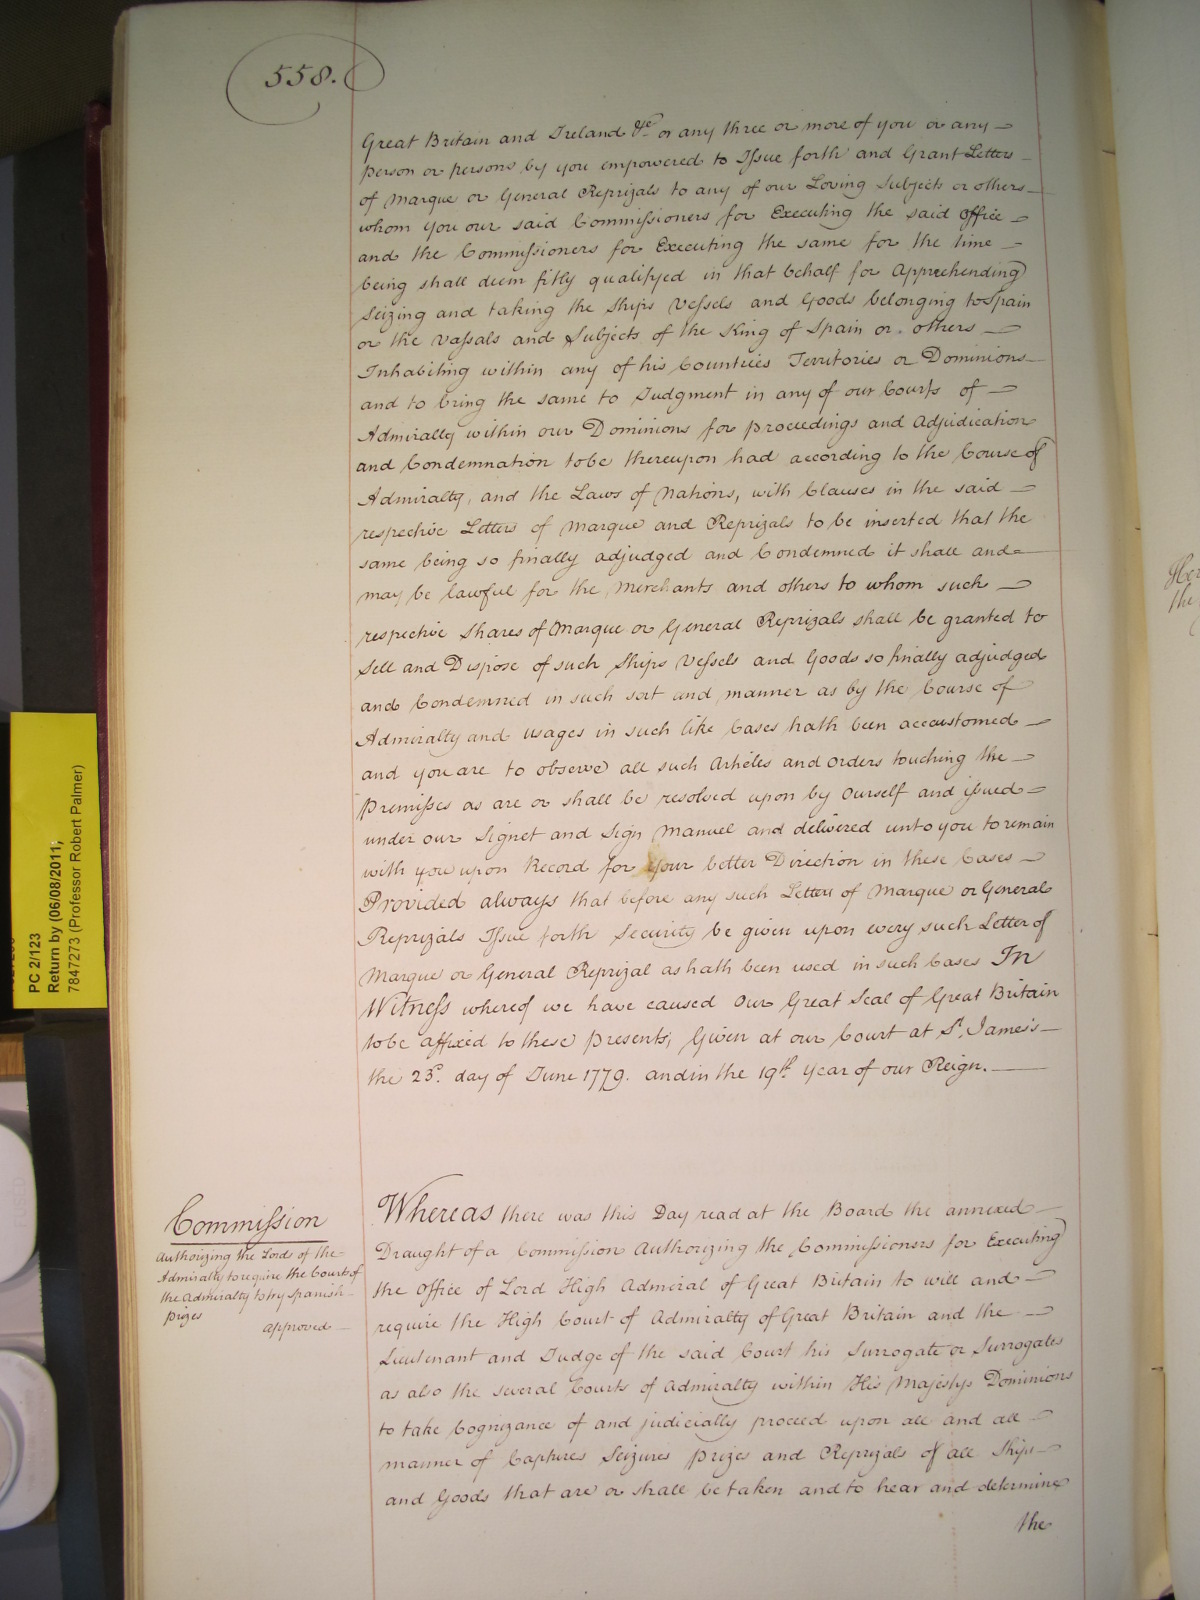 558.
Great Britain and Ireland &c. or any three or more of you or any
person or persons by you empowered to Issue forth and Grant Letters
of Marque or General Reprizals to any of our Loving Subjects or others
whom you our said Commissioners for Executing the said office
and the Commissioners for Executing the same for the time
being shall deem fitly qualifyed in that behalf for Apprehending
Seizing and taking the Ships Vessels and Goods belonging to Spain
or the Vassals and Subjects of the King of Spain or others
Inhabiting within any of his Countries Territories or Dominions
and to bring the same to Judgment in any of our Courts of
Admiralty within our Dominions for proceedings and Adjudication
and Condemnation to be thereupon had according to the Course of
Admiralty, and the Laws of Nations, with Clauses in the said
respective Letters of Marque and Reprizals to be inserted that the
same being so finally adjudged and Condemned it shall and
may be lawful for the Merchants and others to whom such
respective Shares of Marque or General Reprizals shall be granted to
Sell and Dispose of such Ships Vessels and Goods so finally adjudged
and Condemned in such sort and manner as by the Course of
Admiralty and usages in such like Cases hath been accustomed
and you are to observe all such Articles and orders touching the
Premisses as are or shall be resolved upon by Ourself and issued
under our Signet and Sign Manuel and delivered unto you to remain
with you upon Record for your better Direction in these Cases
Provided always that before any such Letters of Marque or General
Reprizals Issue forth Security be given upon every such Letter of
Marque or General Reprizal as hath been used in such Cases In
Witness whereof we have caused Our Great Seal of Great Britain
to be affixed to these Presents, Given at our Court at St. James's
the 23d. day of June 1779. and in the 19th. Year of our Reign.
Commission
Authorizing the Lords of the
Admiralty to require the Courts of
the Admiralty to try Spanish
Prizes
approved
Whereas there was this Day read at the Board the annexed
Draught of a Commission Authorizing the Commissioners for Executing
the Office of Lord High Admiral of Great Britain to will and
require the High Court of Admiralty of Great Britain and the
Lieutenant and Judge of the said Court his Surrogate or Surrogates
as also the several Courts of Admiralty within His Majestys Dominions
to take Cognizance of and judicially proceed upon all and all
manner of Captures Seizures Prizes and Reprizals of all Ships
and Goods that are or shall be taken and to hear and determine
the
PC 2/123
Return by (06/08/2011;
7847273 (Professor Robert Palmer)
Her
the